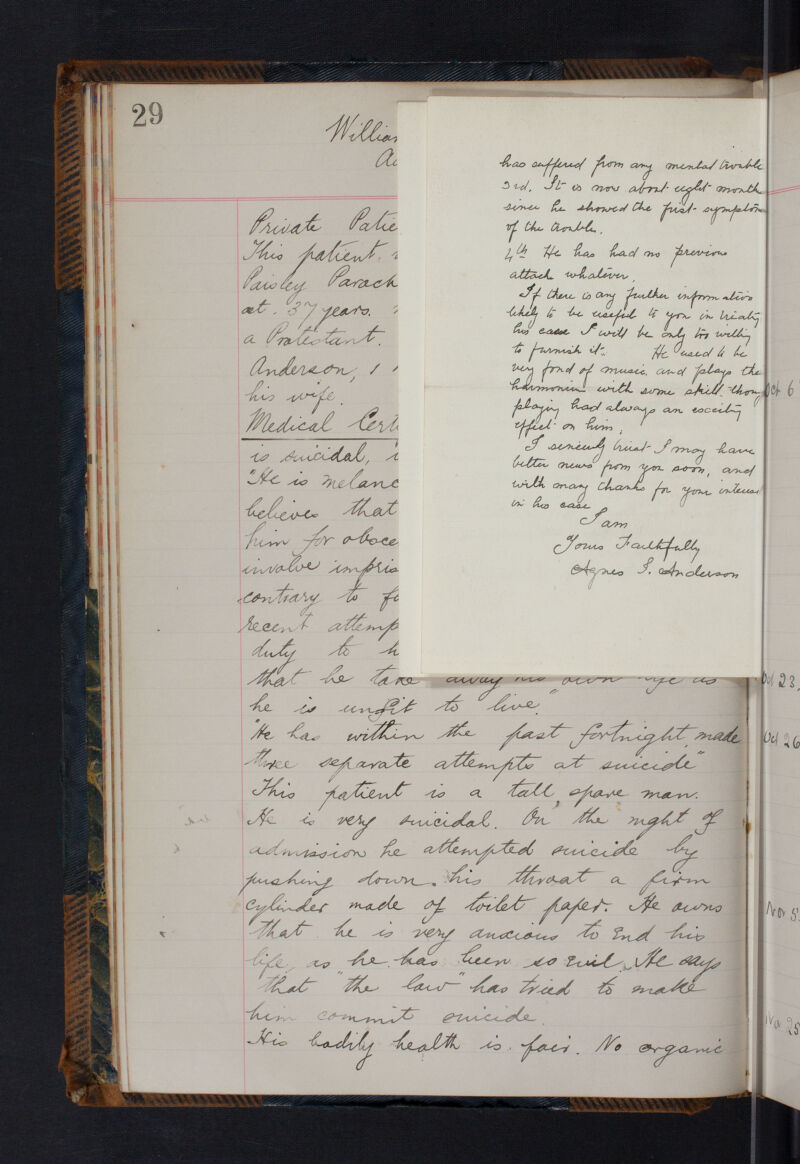 29
William
Ad
Private Patie
This patient
Paisley Paroch
aet. 37 years.
a Protestant.
Anderson,
his wife.
Medical Cert
is suicidal,
"He is melanc
believes that
him for obsce
involve impris
contrary to fa
recent attemp
duty to h
that he take away his own life as
he is unfit to live."
"He has within the past fortnight made
three separate attempts at suicide"
This patient is a tall, spare man.
He is very suicidal. On the night of
admission he attempted suicide by
pushing down his throat a firm
cylinder made of toilet paper. He owns
that he is very anxious to end his
life, as he has been so evil. He says
that "the law" has tried to make
him commit suicide.
His bodily health is fair. No organic
has suffered from any mental trouble
3rd. It is now about eight month
since he showed the first symptom
of the trouble.
4th He has had no previous
attack whatever.
If there is any further information
likely to be useful to you in treating
his case I will be only too willing
to furnish it. He used to be
very fond of music and plays the
harmonium with some skill thoug
playing had always an exciting
effect on him.
I sincerely trust I may have
better news from you soon, and
with many thanks for your interest
in his case
I am
Yours Faithfully
Agnes S. Anderson
Oct 6
Oct 23,
Oct 26
Nov 25